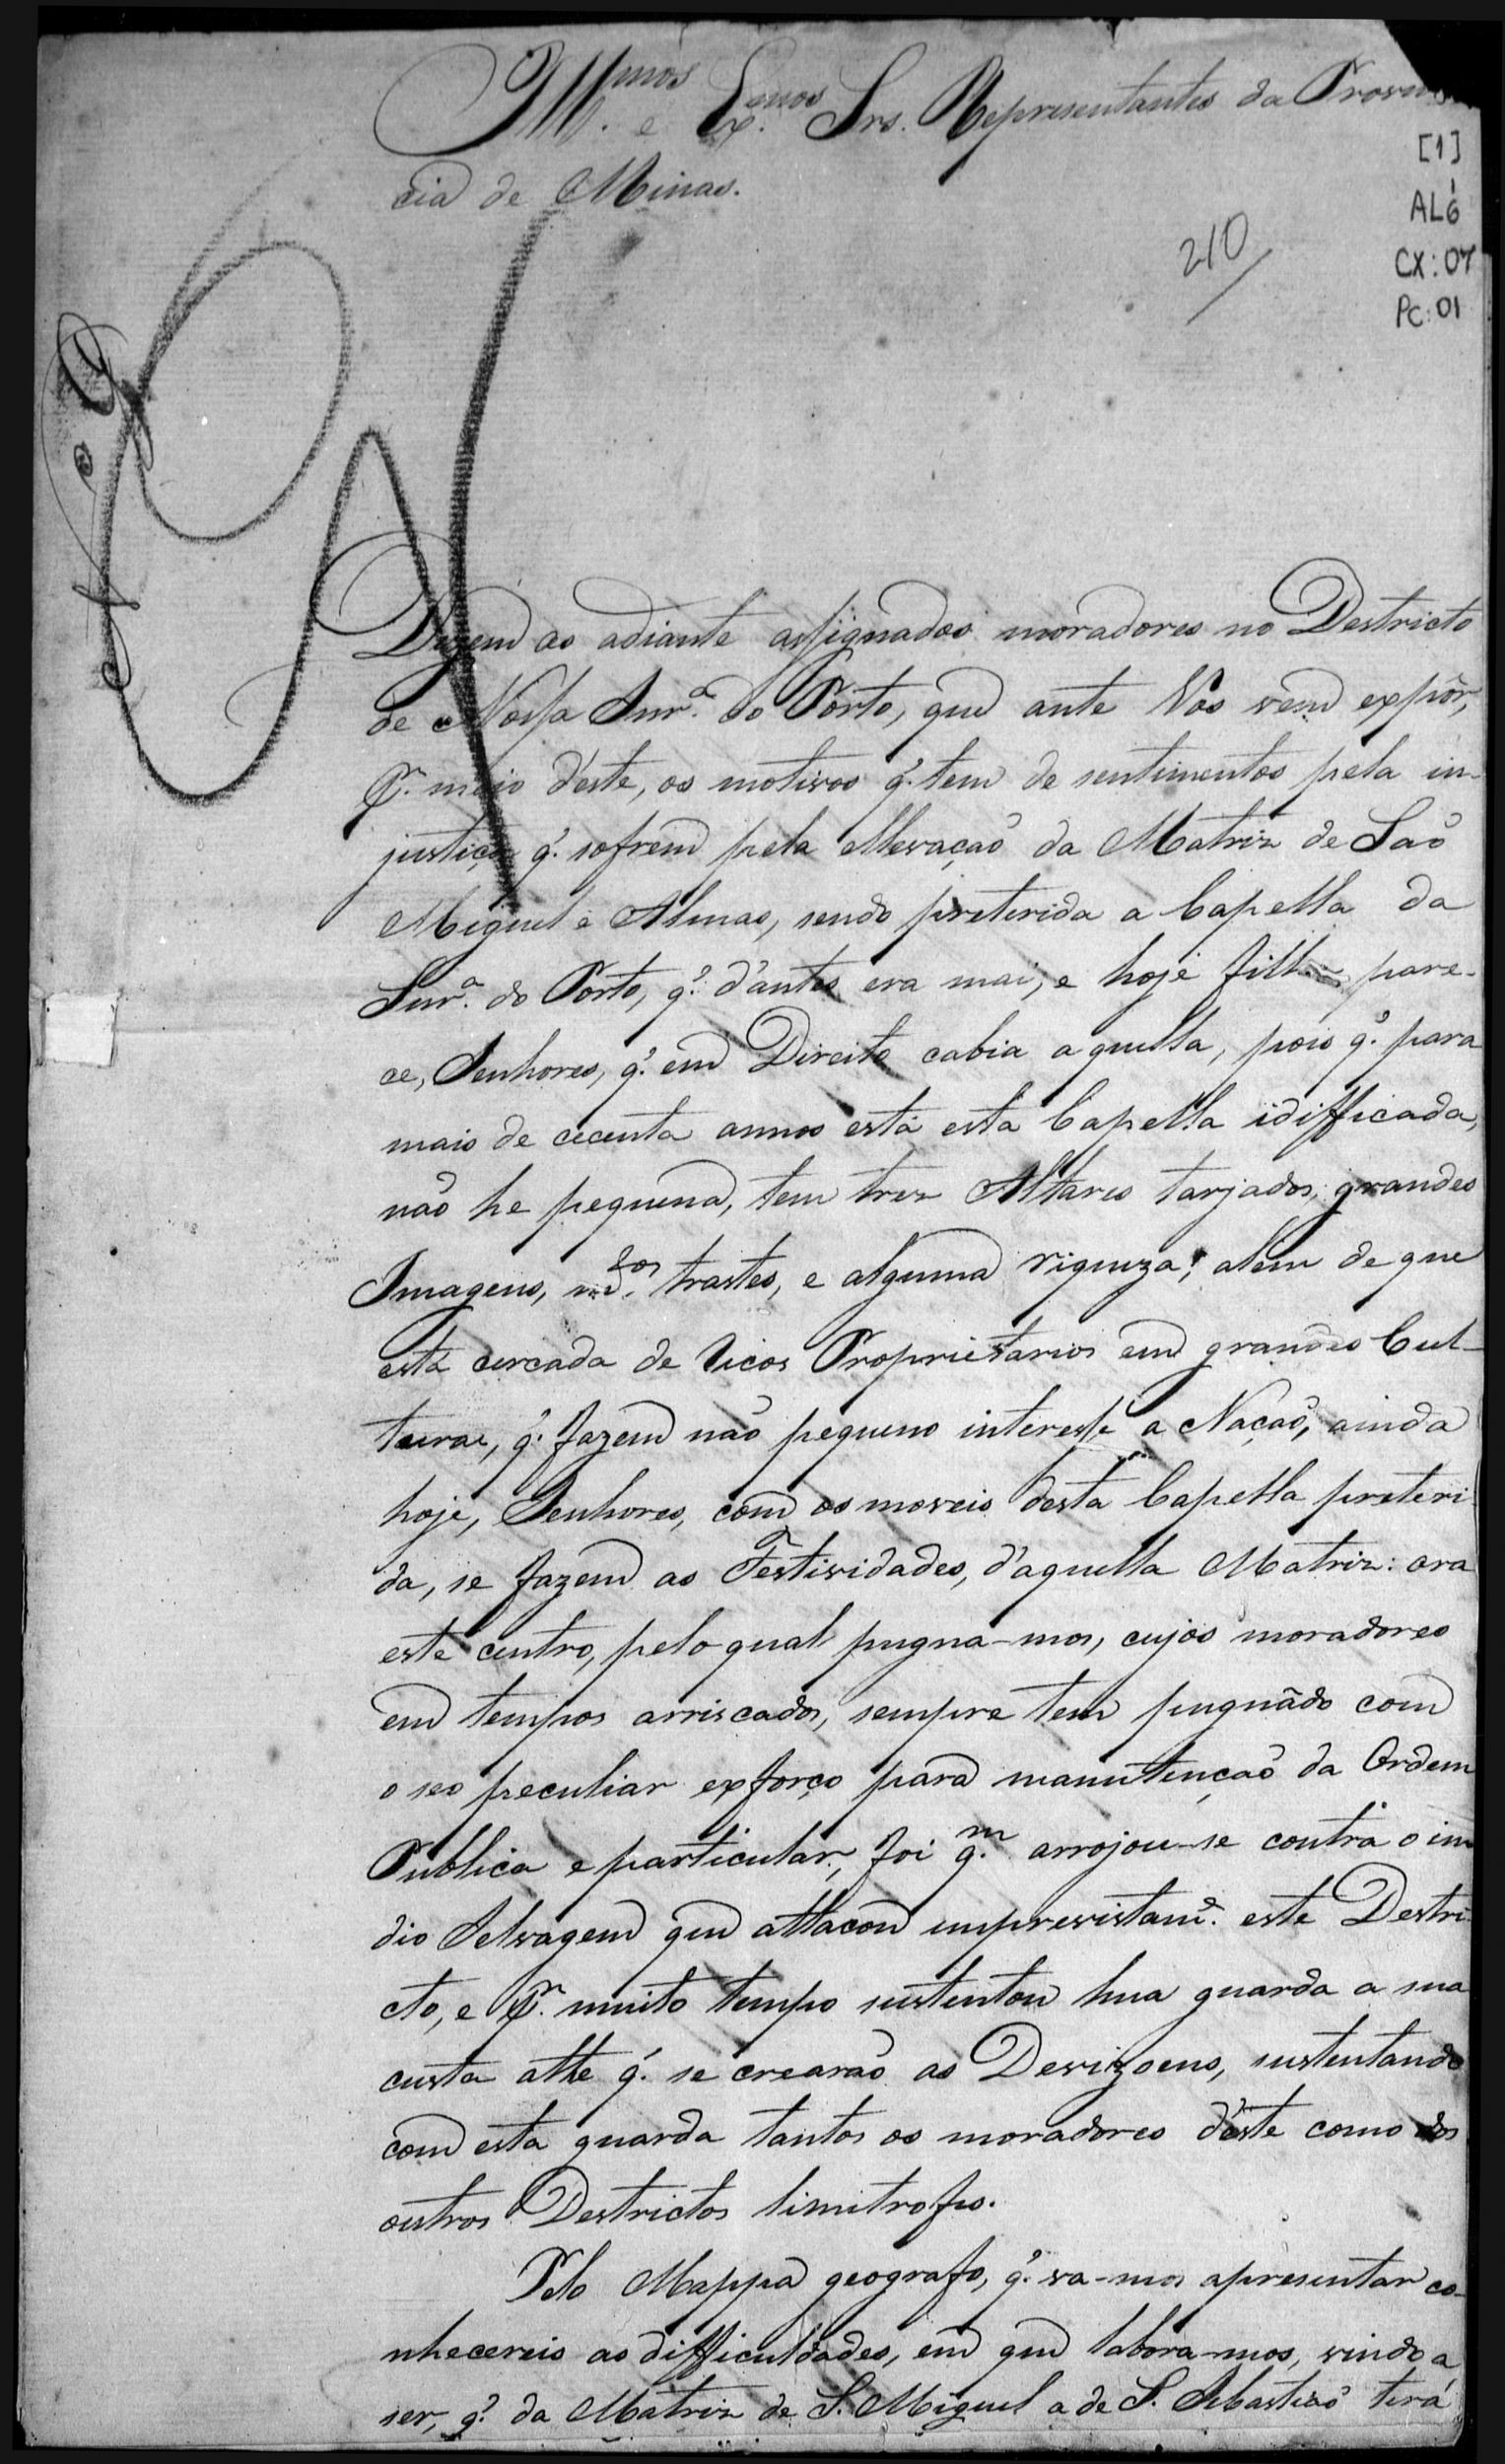 Ill.mos e Ex.mos Srs. Representantes da Provin
cia de Minas.
[1]
AL6
CX: 07
PC: 01
210
Dizem os adiante assignados moradores no Destricto
de Nossa Snr.ª do Porto, que ante Vós vem expôr,
p.r meio d'este, os motivos q̃. tem de sentimentos pela in-
justiça q̃. sofrem pela ellevação da Matriz de São
Miguel e Almas, sendo preterida a Capella da
Snr.ª do Porto, q̃. d'antes era mai, e hoje filha pare-
ce, Senhores, q̃. em Direito cabia aquella, pois q̃. para
mais de cecenta annos está esta Capella idifficada,
não he pequena, tem trez Altares tarjados, grandes
Imagens, m.tos trastes, e alguma riqueza; alem de que
está cercada de ricos Proprietarios em grandes Cul-
turas, q̃. fazem não pequeno interesse a Nação, ainda
hoje, Senhores, com os moveis desta Capella preteri
da, se fazem as Festividades, d'aquella Matriz: ora
este centro, pelo qual pugna-mos, cujos moradores
em tempos arriscados, sempre tem pugnãdo com
o seo peculiar exforço para manutenção da Ordem
Publica e particular, foi q.m arrojou-se contra o in
dio Selvagem que attacou imprevistam.e este Destri
cto, e p.r muito tempo sustentou hua guarda a sua
custa atte q̃. se crearão as Devizoens, sustentando
com esta guarda tantos os moradores d'este como dos
outros Destrictos limitrofes.
Pelo Mappa geografo, q̃. va-mos apresentar co-
nhecereis as difficuldades, em que labora-mos, vindo a
ser, q̃. da Matriz de S. Miguel a de S. Sebastião terá